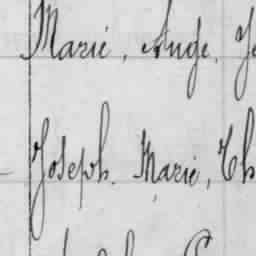 Marie, Ange, Je
Joseph. Marie, Th